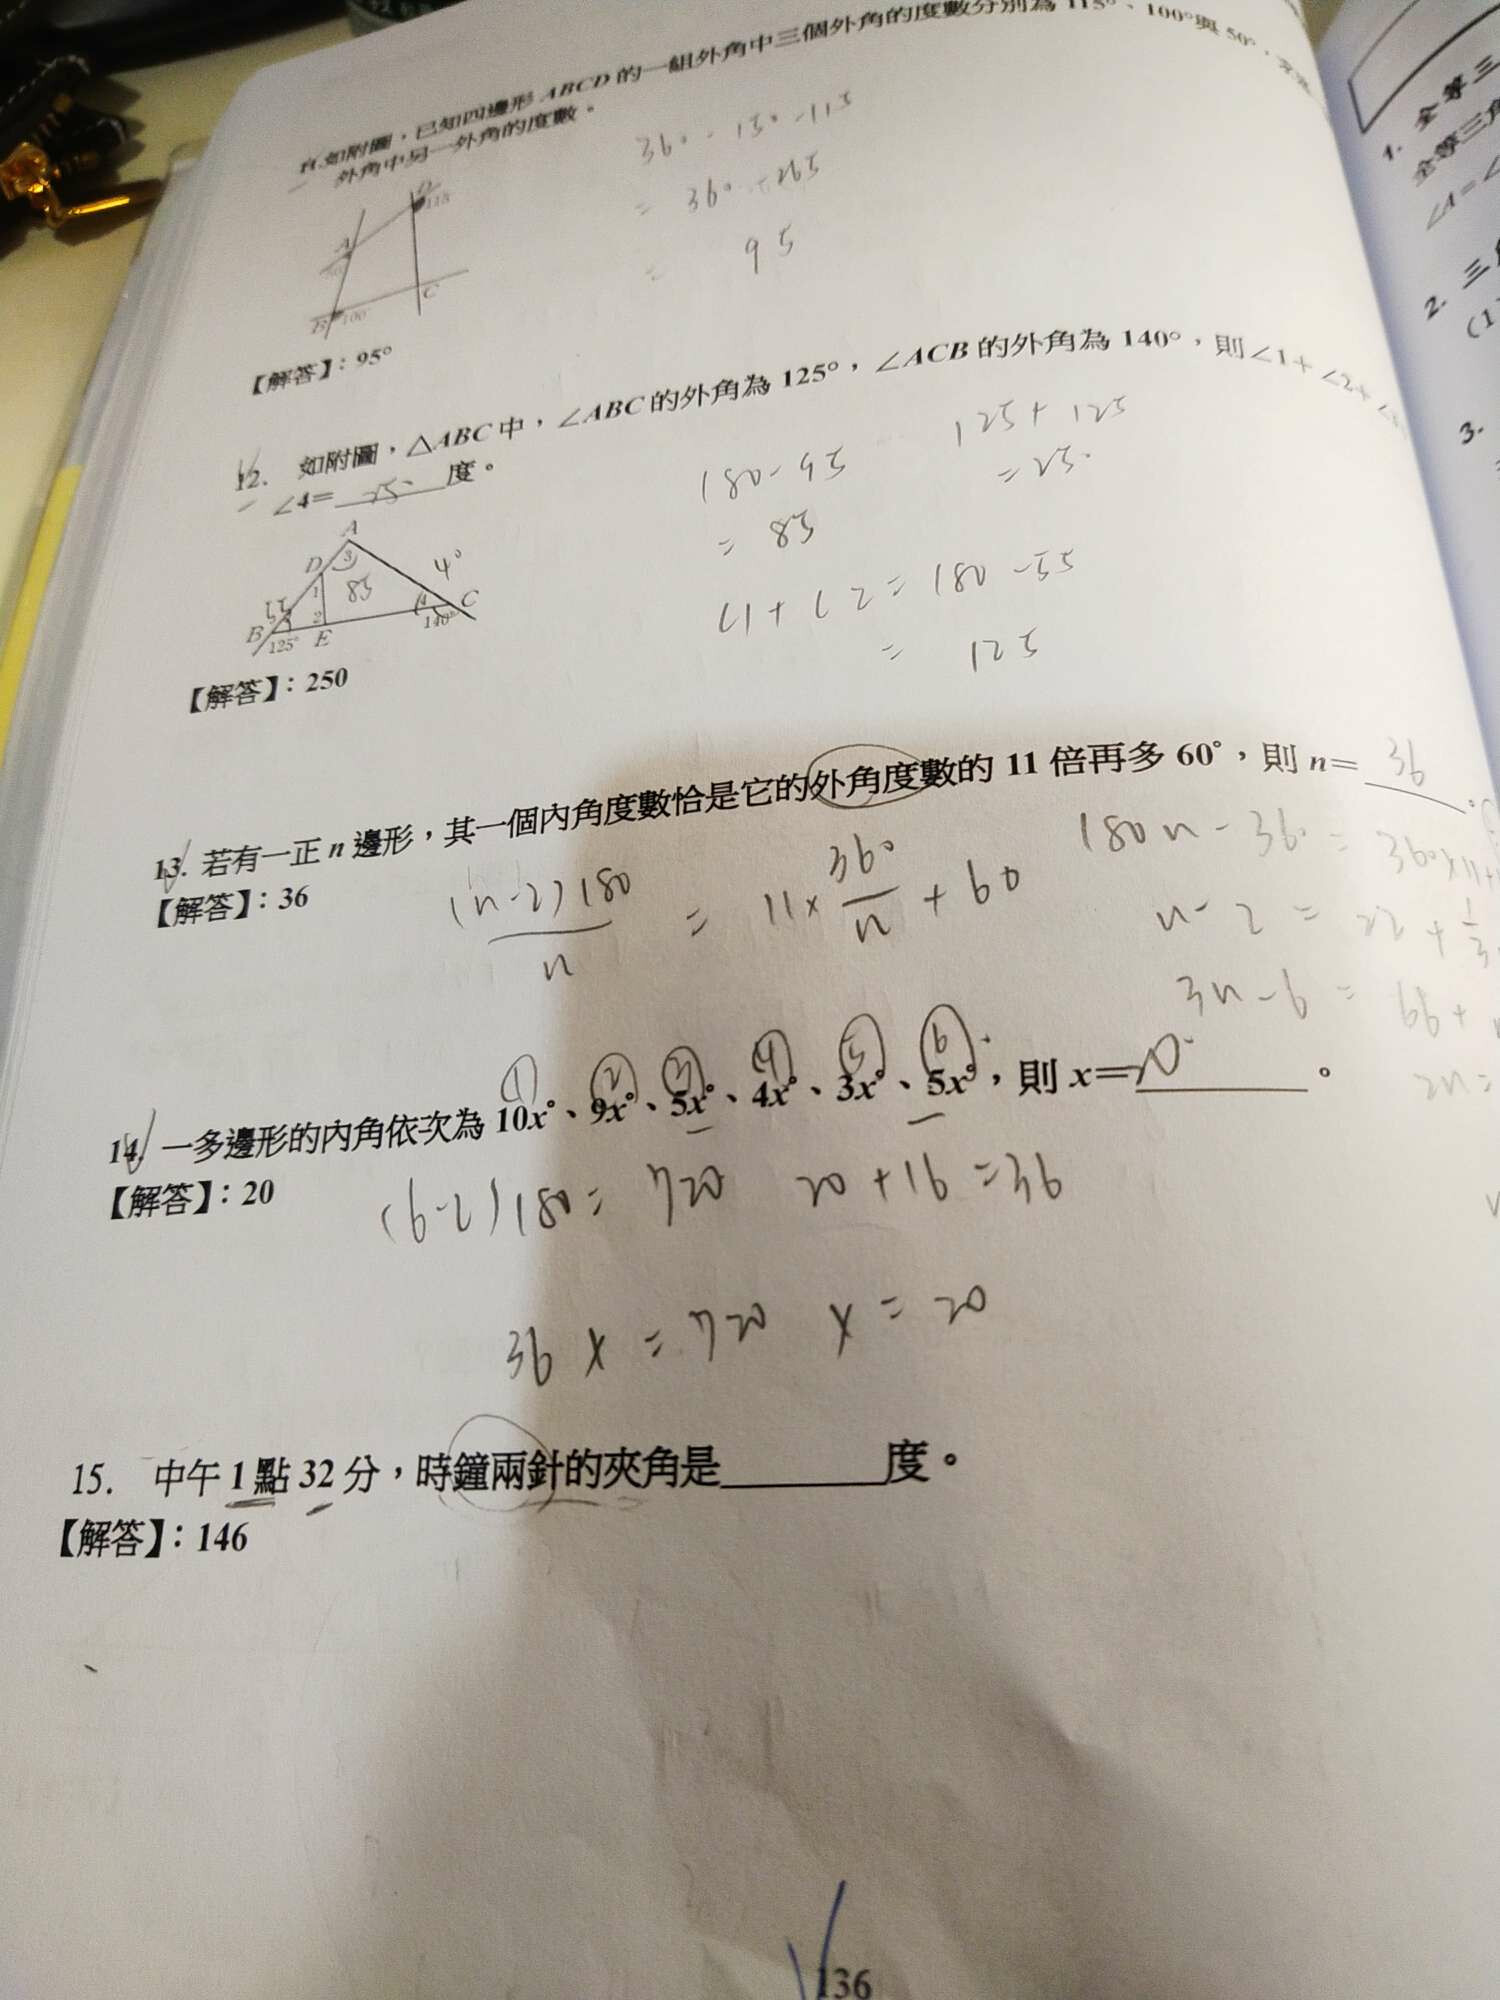 11.如附圖，已知四邊形 ABCD 的一組外角中三個外角的度數分別為 115°、100°與 50°，
外角中另一外角的度數。
360-150-115
= 360-265
= 95
A
D
115
B
100
C
【解答】：95°
12. 如附圖，△ABC 中，∠ABC 的外角為 125°，∠ACB 的外角為 140°，則∠1+∠2+
∠4= 250 度。
180-95
= 85
125+125
=250
∠1+∠2=180-55
= 125
A
D
3
85
4°
55
1
2
4
C
B
125°
E
140°
【解答】：250
13. 若有一正 n 邊形，其一個內角度數恰是它的外角度數的 11 倍再多 60°，則 n= 36 。
【解答】：36
(n-2)180/n = 11×360/n + 60
180n-360 = 360×11+
n-2 = 22+
3n-6 = 66+
2n=
① ② ③ ④ ⑤ ⑥
14. 一多邊形的內角依次為 10x°、9x°、5x°、4x°、3x°、5x°，則 x= 20 。
【解答】：20
(6-2)180=720 20+16=36
36x=720 x=20
15. 中午 1 點 32 分，時鐘兩針的夾角是 度。
【解答】：146
136
1. 全等三
全等三角
∠A=∠
2. 三
(1)
3.